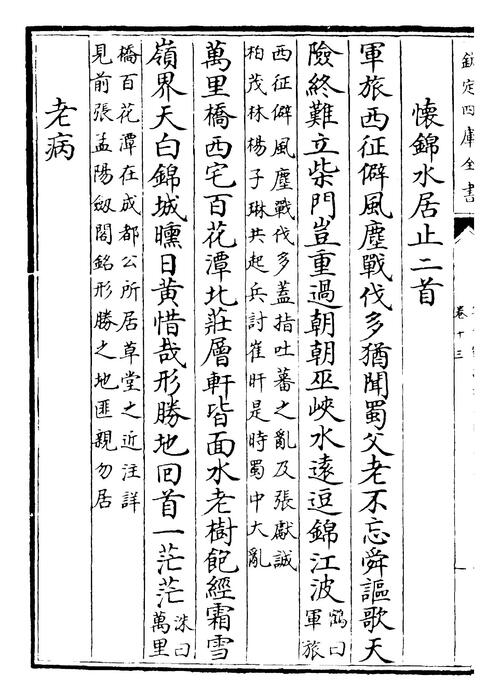 欽定四庫全書
卷十三
懷錦水居止二首
軍旅西征僻風塵戰伐多猶聞蜀父老不忘舜謳歌天
險終難立柴門豈重過朝朝巫峽水遠逗錦江波鶴曰軍旅
西征僻風塵戰伐多蓋指吐蕃之亂及張獻誠
柏茂林楊子琳共起兵討崔旰是時蜀中大亂
萬里橋西宅百花潭北莊層軒皆面水老樹飽經霜雪
嶺界天白錦城曛日黄惜哉形勝地回首一茫茫洙曰萬里
橋百花潭在成都公所居草堂之近注詳
見前張孟陽劔閣銘形勝之地匪親勿居
老病